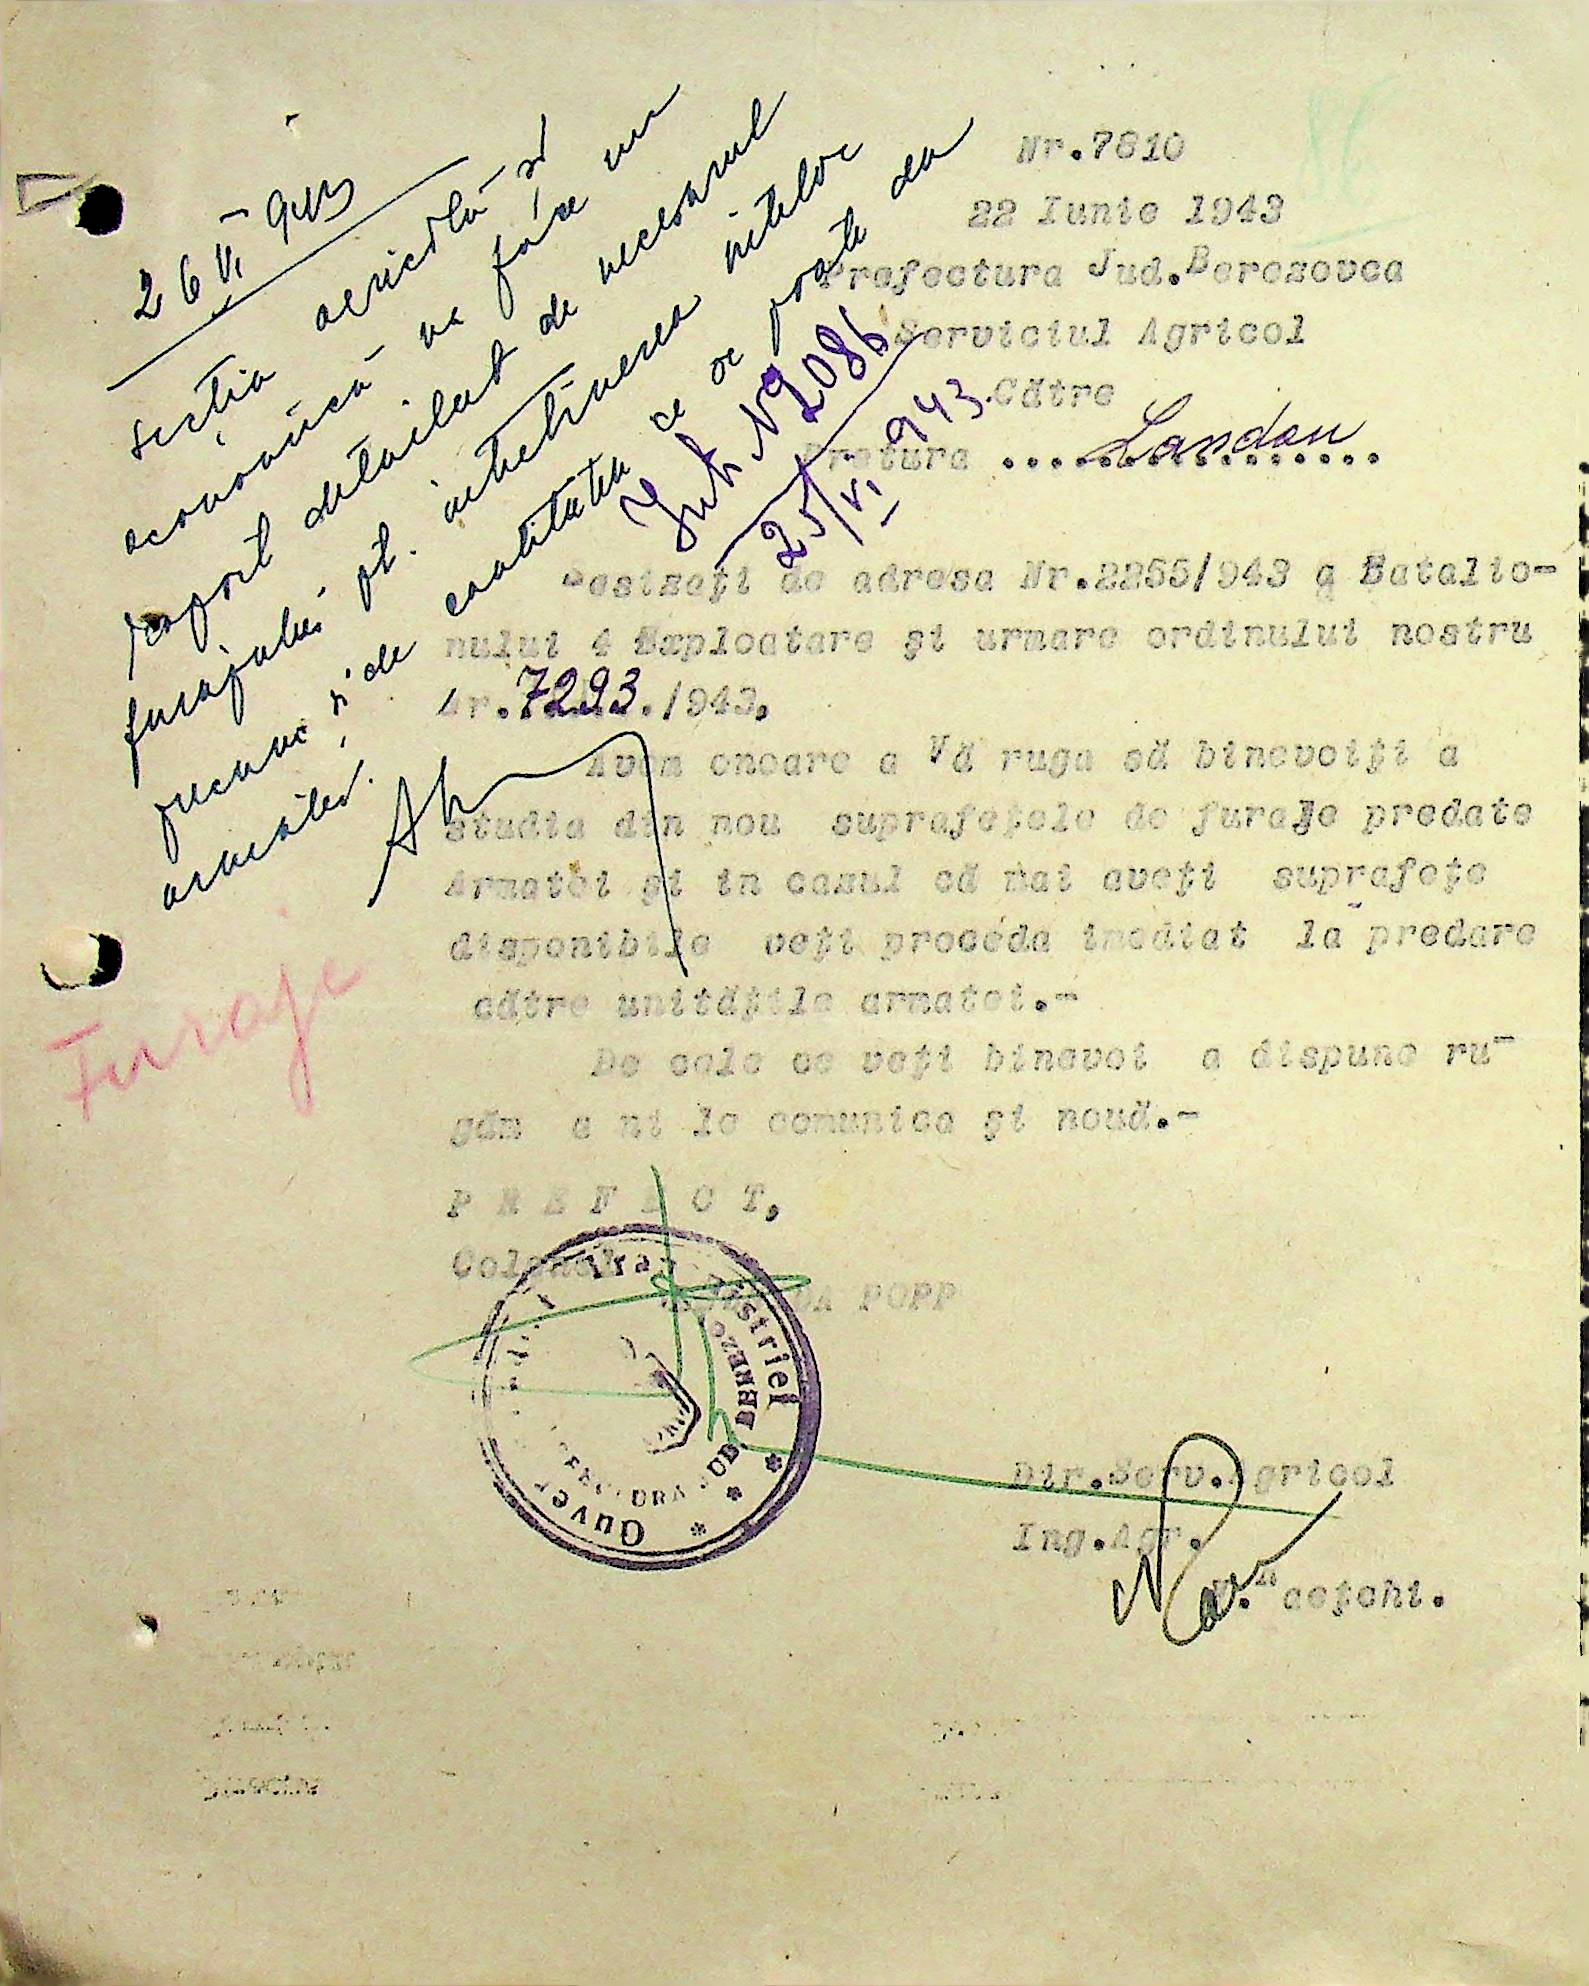 Nr.7810
22 Iunie 1943
Prefectura Jud.Berezovca
Serviciul Agricol
Către
Pretura ........ Landau
Sesizați de adresa Nr.2255/943 a Batalio-
nului 4 Exploatare și urmare ordinului nostru
Nr.7293./943,
Avem onoare a Vă ruga să binevoiți a
studia din nou suprafețele de furaje predate
Armatei și in cazul că mai aveți suprafețe
disponibile veți proceda imediat la predare
către unitățile armatei.-
De cele ce veți binevoi a dispune ru-
găm a ni le comunica și nouă.-
P R E F E C T,
Colonel
POPP
Dir.Serv.Agricol
Ing.Agr.
26 VI 943
secția agricolă și
economică va face un
raport detailat de necesarul
furajului pt. intretinerea vitelor
și de cantitatea ce se poate da
armatei.
Int. No 2086
25/VI 943.
Furaje
86
Guver
striei